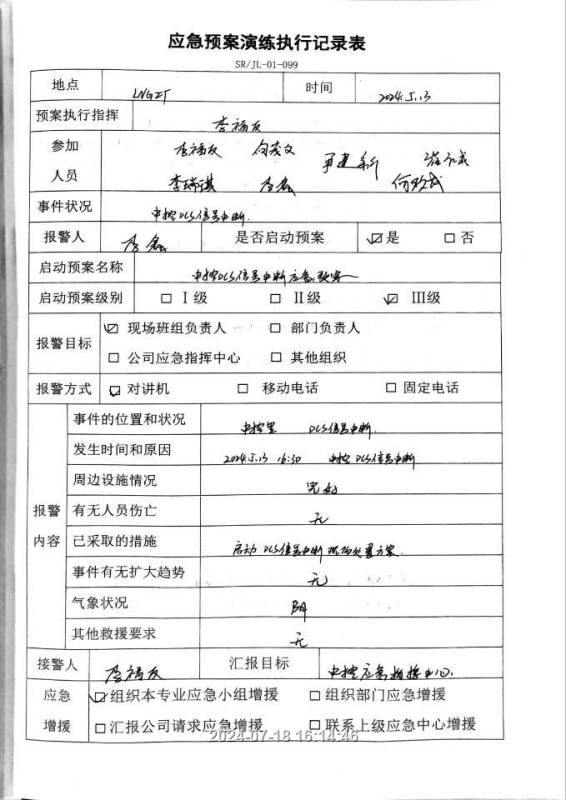 应急预案演练执行记录表
SR/JL-01-099
地点 时间 2024.5.13
预案执行指挥 李福友
参加 李福友
人员 李瑞祺 李磊
事件状况 中控DCS信号中断
报警人 李磊 是否启动预案 ☑是 □否
启动预案名称 中控DCS信号中断应急预案
启动预案级别 □Ⅰ级 □Ⅱ级 ☑Ⅲ级
报警目标 ☑现场班组负责人 □部门负责人
□公司应急指挥中心 □其他组织
报警方式 ☑对讲机 □移动电话 □固定电话
报警内容
事件的位置和状况 中控室 DCS信号中断
发生时间和原因 2024.5.13 16:30 中控DCS信号中断
周边设施情况 完好
有无人员伤亡 无
已采取的措施 启动DCS信号中断现场处置方案
事件有无扩大趋势 无
气象状况 阴
其他救援要求 无
接警人 李福友 汇报目标 中控应急指挥中心
应急增援
☑组织本专业应急小组增援 □组织部门应急增援
□汇报公司请求应急增援 □联系上级应急中心增援
2024-07-18 16:14:46